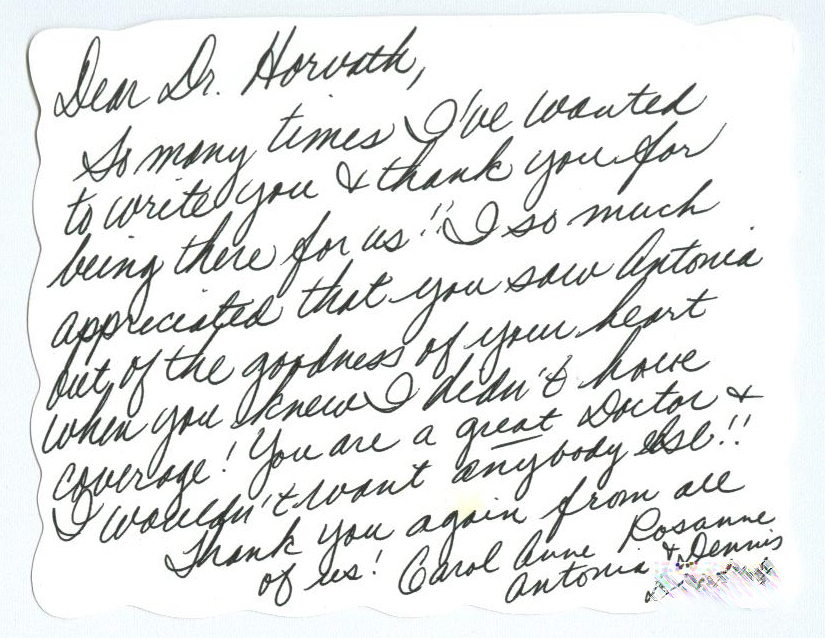 Dear Dr. Horvath,
So many times I've wanted
to write you & thank you for
being there for us!! I so much
appreciated that you saw Antonia
out of the goodness of your heart
when you knew I didn't have
coverage! You are a great Doctor &
I wouldn't want anybody else!!
Thank you again from all
of us! Carol Anne Rosanne
Antonia & Dennis